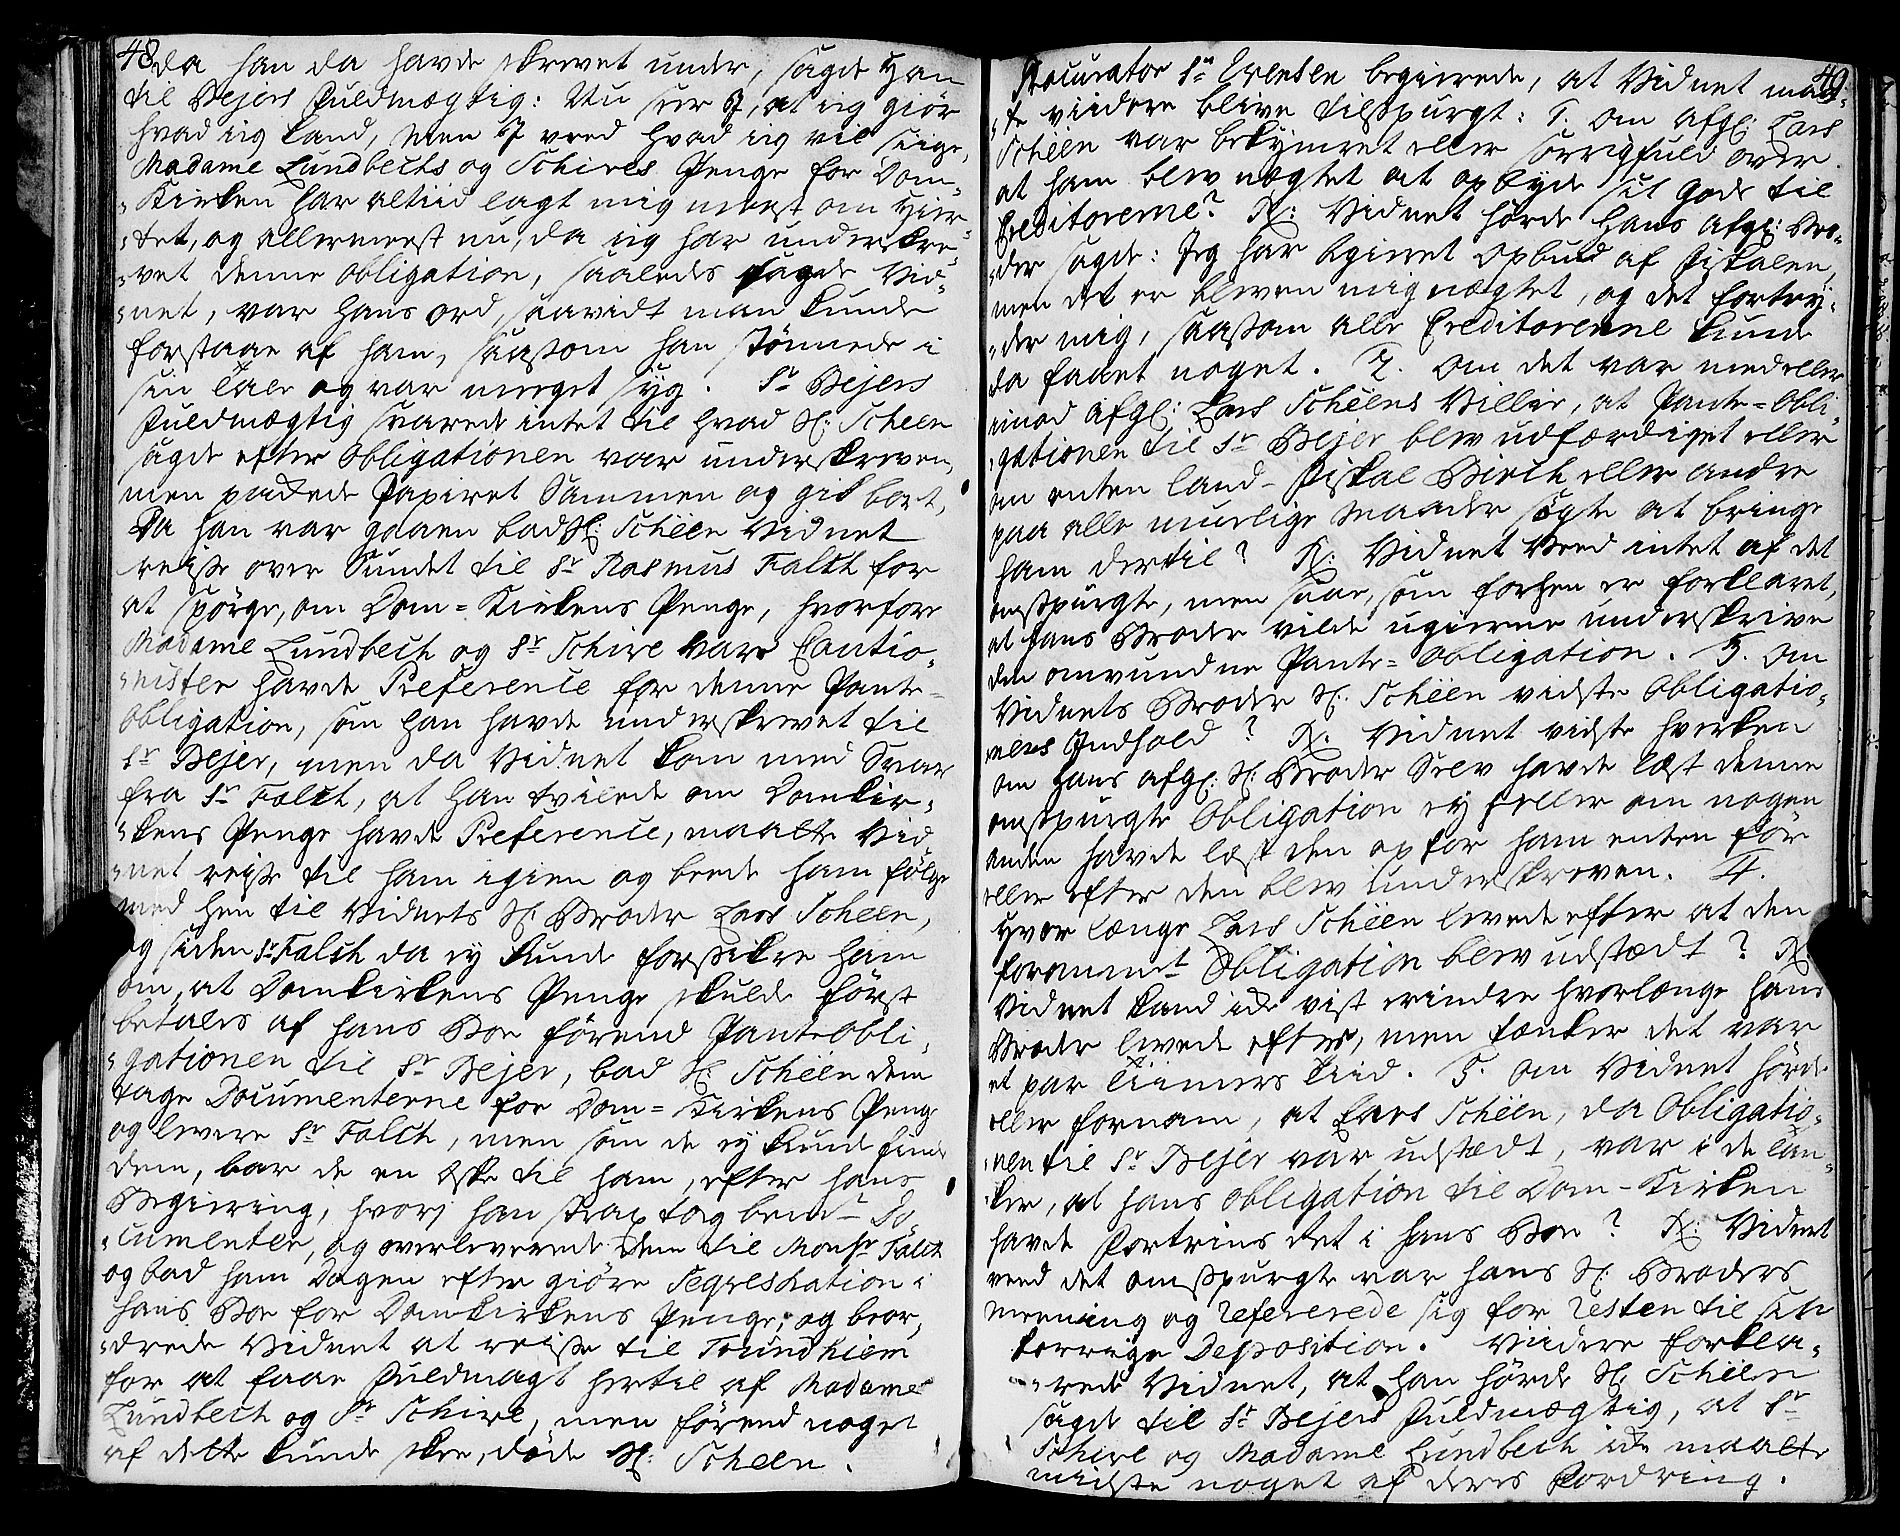 48
da han da havde skrevet under, sagde Han
til Bejers Fuldmægtig: Nu seer I, at jeg giør
hvad jeg kand, men I veed hvad jeg vil siige,
Madame Lundbechs og Schires Penge for Dom-
„Kirken har altiid lagt mig meest om Hier-
„tet, og allermeest nu, da jeg har underskre-
„vet denne Obligation, saaledes sagde Vid-
„net, var hans ord, saavidt man kunde
forstaae af ham, saasom han stønnede i
sin Tale og var meget syg. Sr Bejers
Fuldmægtig svarede intet til hvad Hr: Scheen
sagde efter Obligationen var underskreven,
men pakkede Papiret sammen og gik bort,
Da han var gaaen bad Hr: Schëen Vidnet
reise over Sundet til Sr Rasmus Falch for
at spørge, om Dom-Kirkens Penge, hvorfore
Madame Lundbech og Sr Schire vare Cautio-
„nister havde Preference for denne Pante-
Obligation, som han havde underskrevet til
Sr Bejer, men da Vidnet kom med Svar
fra Sr Falch, at han tvilede om Domkir-
„kens Penge havde Preference, maatte Vid-
„net reise til ham igien og beede ham følge
med hen til Vidnets Hr: Broder Lars Scheen,
og siden Sr Falch da ej kunde forsikre ham
om, at Domkirkens Penge skulde først
betales af hans Boe førend Pante Obli-
„gationen til Sr Bejer, bad Hr: Schëen dem
tage Documenterne for Dom-Kirkens Penge
og levere Sr Falch, men som de ej kunde finde
dem, bar de en Eske til ham, efter hans
Begiering, hvorj han strax tog bemte Do-
„cumenter, og overleverede dem til Monsr Falch
og bad ham Dagen efter giøre Seqvestration i
hans Boe for Domkirkens Penge; og beor-
„drede Vidnet at reise til Trundhiem
for at faae Fuldmagt hertil af Madame
Lundbech og Sr Schire, men førend noget
af dette kunde skee, døde Hr: Scheen.
49
Procurator Sr Evensen begierede, at Vidnet maat-
„te viidere blive tilspurgt: 1. om afgl: Lars
Schëen var bekymret eller sorrigfuld over
at ham blev nægtet at opbyde sit Gods til
Creditorerne? R: Vidnet hørde hans afgl: Bro-
„der sagde: Jeg har begieret Opbud af Fiskalen,
men det er bleven mig nægtet, og det fortry-
„der mig, saasom alle Creditorerne kunde
da faaet noget. 2. Om det var med eller
imod afgl: Lars Schëens Villie, at Pante-Obli-
„gationen til Sr Bejer blev udfærdiget eller
om enten Land-Fiskal Birch eller andre
paa alle muelige Maader søgte at bringe
ham dertil? R: Vidnet Veed intet af det
omspurgte, men saae, som forhen er forklaret,
at hans Broder vilde ugierne underskrive
den omvundne Pante-Obligation. 3. Om
Vidnets Broder Hr: Schëen vidste Obligatio-
nens Indhold? R: Vidnet vidste hverken
om hans afgl: Hr: Broder Selv havde læst denne
omspurgte Obligation ej heller om nogen
anden havde læst den op for ham enten før
eller efter den blev underskreven. 4.
Hvor længe Lars Schëen levede efter at den
forommelte Obligation blev udstædt? R:
Vidnet kand ikke vist erindre hvorlænge hans
Broder levede efter, men tænker det var
et par Tiimers Tiid. 5. Om Vidnet hørde
eller fornam, at Lars Schëen, da Obligatio-
„nen til Sr Bejer var udstædt, var i de Tan-
„ker, at hans Obligation til Dom-Kirken
havde Fortrins Ret i hans Boe? R: Vidnet
veed det omspurgte var hans Hr: Broders
meening og refererede sig for resten til sin
forrige Deposition. Viidere forkla-
„rede Vidnet, at han hørde Hr Schëen
sagde til Sr Bejers Fuldmægtig, at Sr
Schire og Madame Lundbech ikke maatte
miste noget af deres Fordring.